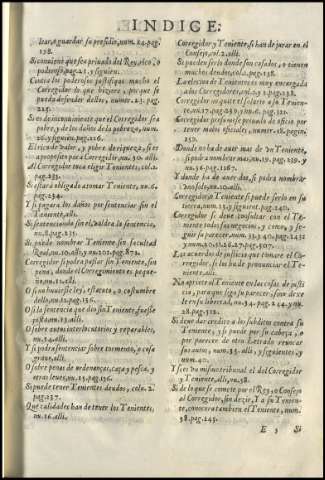 INDICE.
char, aguardar su presidio, num. 24. pag.
238.
Si conviene que sea privado del Rey, rico, o
poderoso, pag. 21. y siguien.
Contra los poderosos justifique mucho el
Corregidor lo que hiziere, porque se
pueda defender dellos, numer. 23. pag.
225.
Si es de inconveniente que el Corregidor sea
pobre, y de los daños de la pobreza, num.
26. y siguien. pag. 226.
El rico de valor, y pobre de riqueza, si es
a proposito para Corregidor, nu. 30. alli.
Al Corregidor toca elegir Tenientes, col. 2.
pag.
Si estará obligado a tomar Teniente, nu. 6.
pag. 234.
Y si pagará los daños por sentenciar sin el
Teniente, alli.
Si sentenciando sin el, valdra la sentencia,
nu. 8. 235.
Si puede nombrar Teniente sin facultad
Real, nu. 10. alli, y nu. 202. pag. 871.
Corregidor si podra passar sin Teniente, sin
pena, donde el Corregimiento es peque-
ño, nu. 12. alli.
O si huviesse ley, estatuto, o costumbre
dello, nu. 12. pag. 236.
O si la sentencia que dió sin Teniente, fuesse
justa, nu. 13. alli.
O sobre autos interlocutorios, y reparables,
nu. 14. alli.
Y si podra sentenciar sobre tormento, o caso
grave, alli.
O sobre penas de ordenanças, caça y pesca, y
otras leves, nu. 15. pag. 236.
Si puede tener Tenientes deudos, colu. 2.
pag. 237.
Que calidades han de tener los Tenientes,
nu. 16. alli.
Corregidor, y Teniente, si han de jurar en el
Consejo, col. 2. alli.
Si pueden serlo donde son casados, o tienen
muchos deudos, col. 2. pag. 238.
La eleccion de Tenientes es muy encargada
a los Corregidores, col. 2. pag. 238.
Corregidor no quite el salario a su Tenien-
te, nu. 17. pag. 239. y nu. 31. pag. 246.
Corregidor promuevese privado de oficio por
tener malos oficiales, numer. 18. pagin.
240.
Donde no ha de aver mas de un Teniente,
si podra nombrar mas, nu. 19. pag. 239. y
nu. 36. pag. 1167.
Y donde ha de aver dos, si podra nombrar
uno solo, nu. 20. alli.
Corregidor, o Teniente si puede serlo en su
tierra, num. 23. y num. 28. alli.
Corregidor si deve consultar con el Te-
niente todos los negocios, y como, y se-
guir su parecer, num. 33. pag. 240. pag. 1432.
y num. 20. 21. 26. 27. pag. 507.
Los acuerdos de justicia que tomare el Co-
rregidor, si los ha de pronunciar el Te-
niente, alli.
No apriete el Teniente en las cosas de justi-
cia, para que siga su parecer, sino dexe-
le en su libertad, nu. 34. pag. 244. y nu.
38. pag. 312.
Si deve dar credito a los subditos contra su
Teniente, y si puede por su cabeça, o
por parecer de otro Letrado revocar
sus autos, num. 35. alli, y siguientes, y
num. 40.
Y si es un mismo tribunal el del Corregidor
y Teniente, alli, nu. 38.
Si de lo que se comete por el Rey, o Consejo
al Corregidor, sin dezir, Y a su Tenien-
te, conocerá tambien el Teniente, num.
38. pag. 245.
E 3
Si